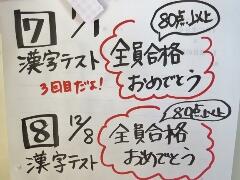 7 1/1
漢字テスト
3回目だよ!
80点以上
全員合格
おめでとう
8 12/8
漢字テスト
80点以上
全員合格
おめでとう